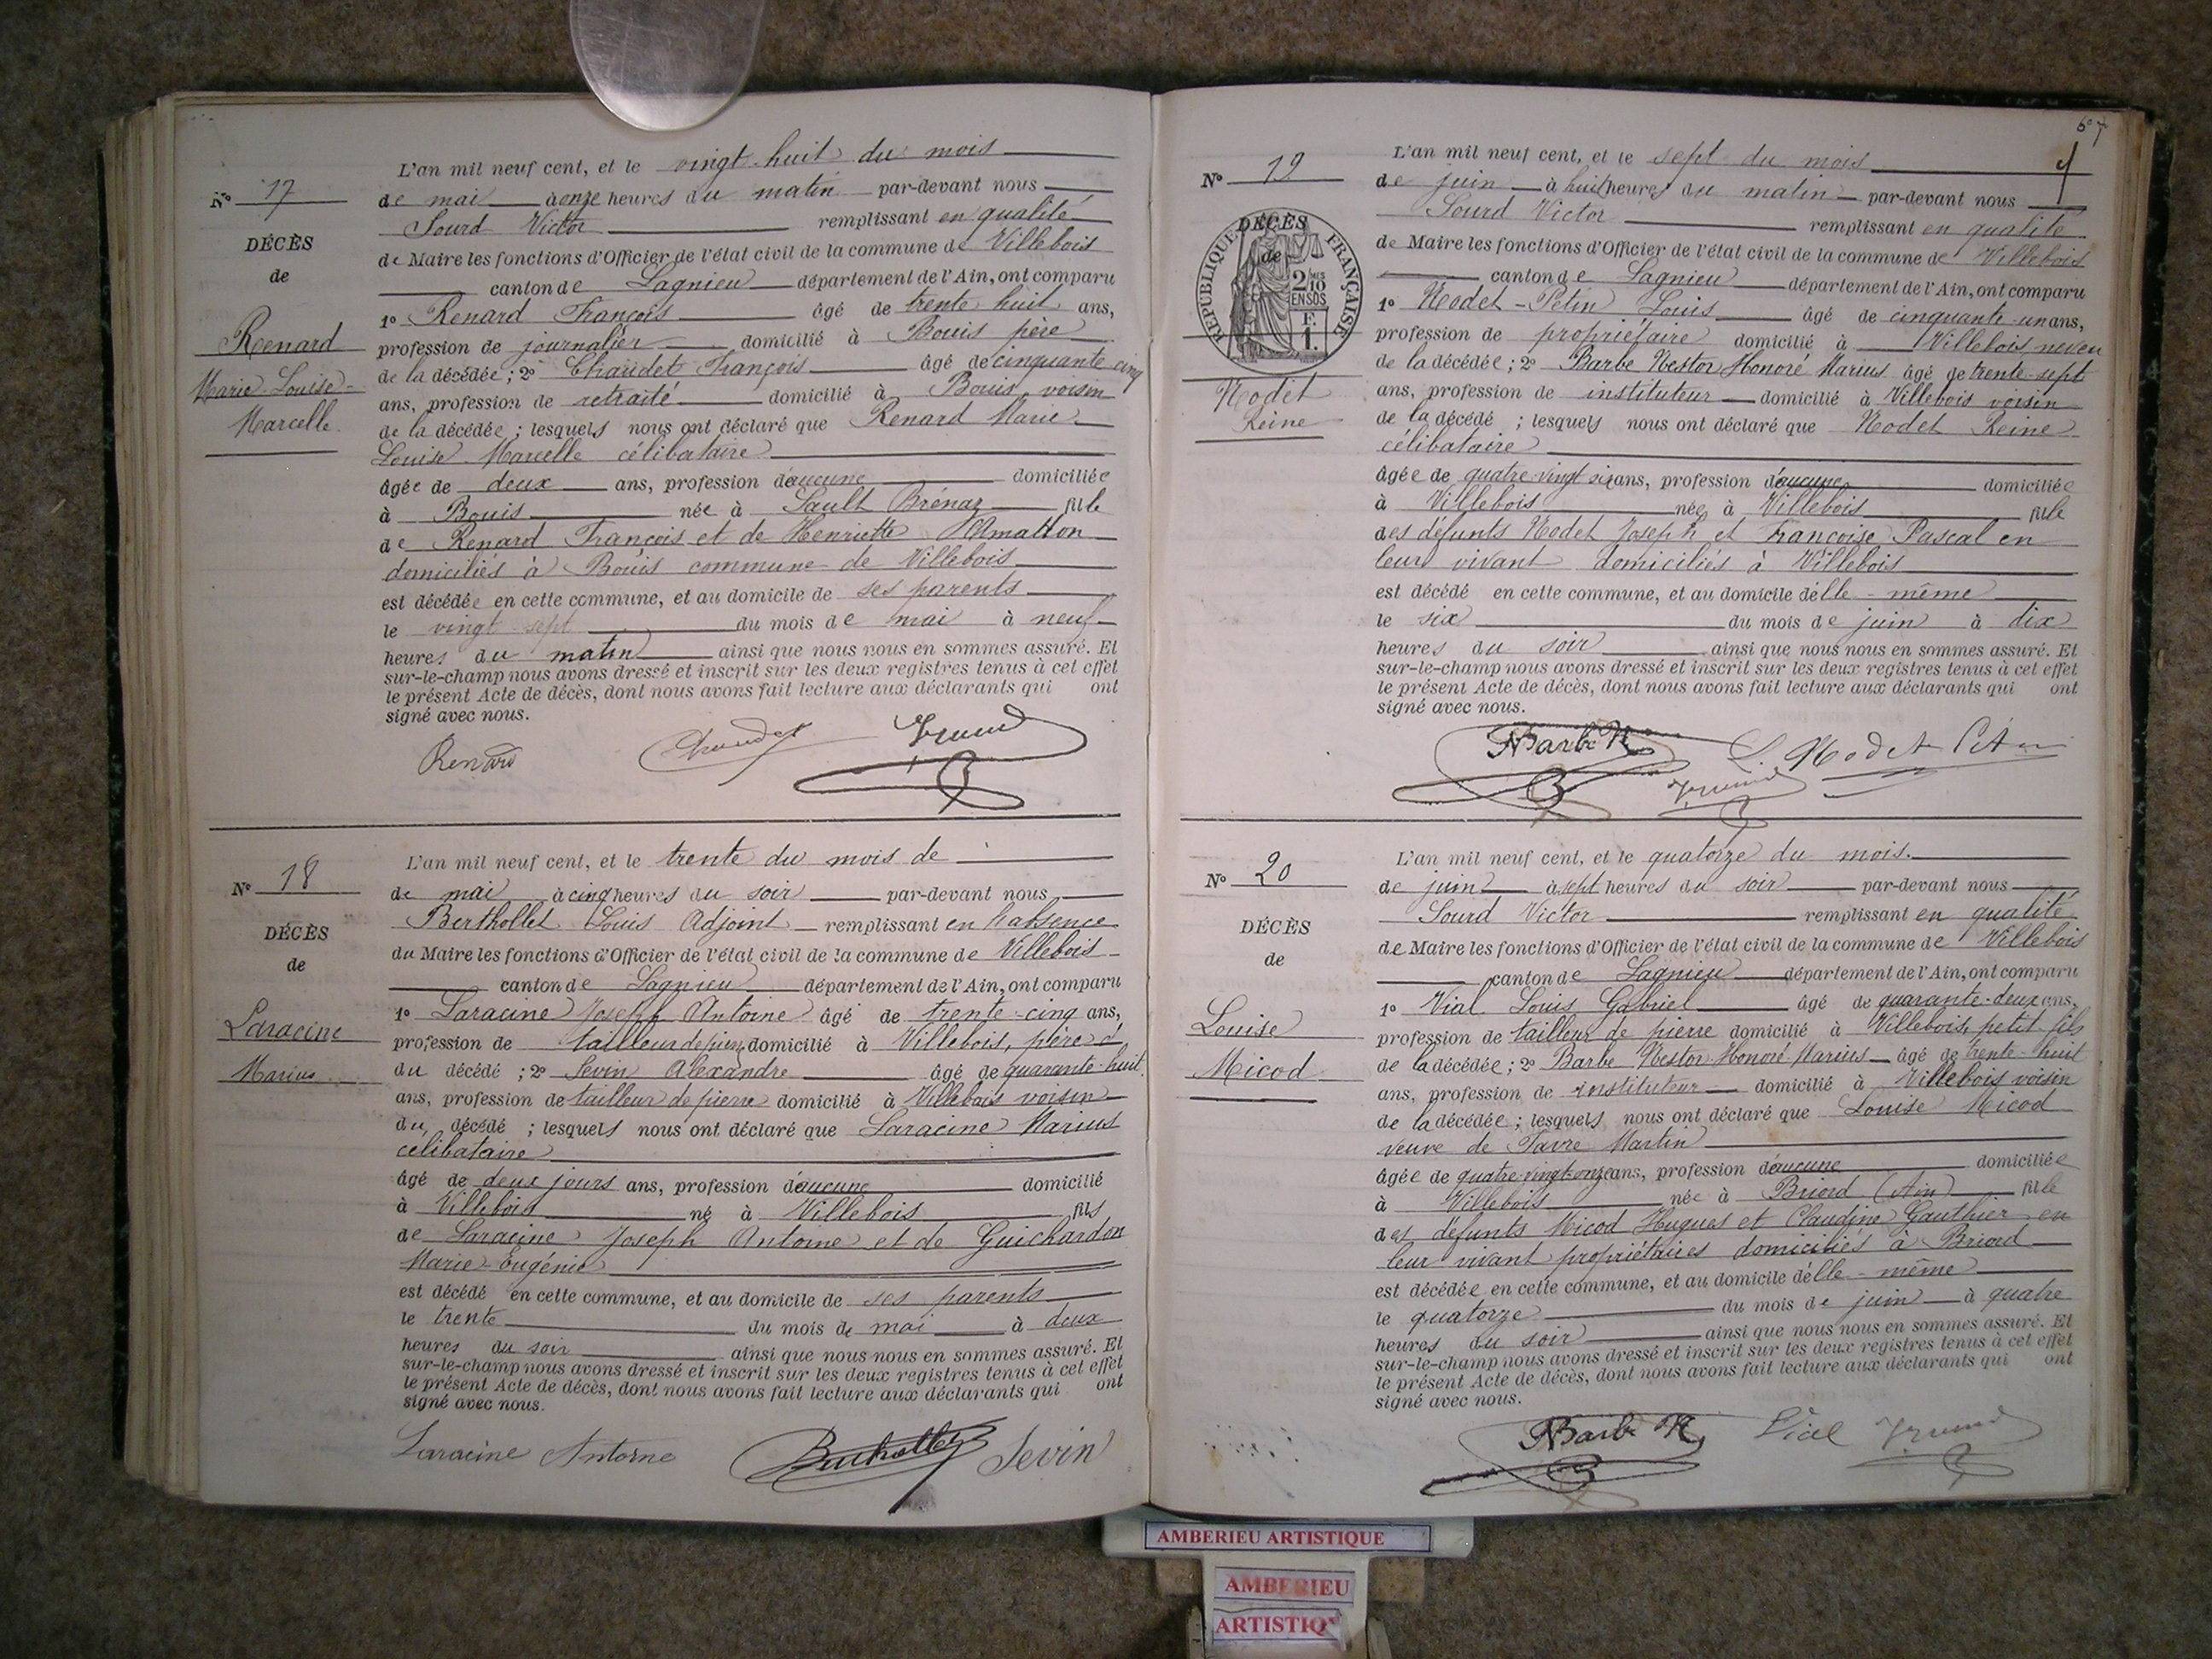 N° 17
DÉCÈS
de
Renard
Marie-Louise-
Marcelle
L'an mil neuf cent, et le vingt-huit du mois
de mai à onze heures du matin par-devant nous
Sourd Victor remplissant en qualité
de Maire les fonctions d'Officier de l'état civil de la commune de Villebois
canton de Lagnieu département de l'Ain, ont comparu
1° Renard François âgé de trente-huit ans,
profession de journalier domicilié à Bouis père
de la décédée ; 2° Chaudet François âgé de cinquante cinq
ans, profession de retraité domicilié à Bouis voisin
de la décédée ; lesquels nous ont déclaré que Renard Marie
Louise Marcelle célibataire
âgée de deux ans, profession d'aucune domiciliée
à Bouis née à Sault Brénaz fille
de Renard François et de Henriette Amatton
domiciliés à Bouis commune de Villebois
est décédée en cette commune, et au domicile de ses parents
le vingt-sept du mois de mai à neuf
heures du matin ainsi que nous nous en sommes assuré. Et
sur-le-champ nous avons dressé et inscrit sur les deux registres tenus à cet effet
le présent Acte de décès, dont nous avons fait lecture aux déclarants qui ont
signé avec nous.
Renard Chaudet
N° 18
DÉCÈS
de
Laracine
Marius
L'an mil neuf cent, et le trente du mois de
de mai à cinq heures du soir par-devant nous
Berthollet Louis Adjoint remplissant en l'absence
du Maire les fonctions d'Officier de l'état civil de la commune de Villebois
canton de Lagnieu département de l'Ain, ont comparu
1° Laracine Joseph Antoine âgé de trente-cinq ans,
profession de tailleur de pierre domicilié à Villebois, père
du décédé ; 2° Sevin Alexandre âgé de quarante-huit
ans, profession de tailleur de pierre domicilié à Villebois voisin
du décédé ; lesquels nous ont déclaré que Laracine Marius
célibataire
âgé de deux jours ans, profession d'aucune domicilié
à Villebois né à Villebois fils
de Laracine Joseph Antoine et de Guichardon
Marie-Eugénie
est décédé en cette commune, et au domicile de ses parents
le trente du mois de mai à deux
heures du soir ainsi que nous nous en sommes assuré. Et
sur-le-champ nous avons dressé et inscrit sur les deux registres tenus à cet effet
le présent Acte de décès, dont nous avons fait lecture aux déclarants qui ont
signé avec nous.
Laracine Antoine Berthollet Sevin
N° 19
DÉCÈS
de
RÉPUBLIQUE FRANÇAISE
2/10 EN SUS
F. 1.
Nodet
Reine
L'an mil neuf cent, et le sept du mois
de juin à huit heures du matin par-devant nous
Sourd Victor remplissant en qualité
de Maire les fonctions d'Officier de l'état civil de la commune de Villebois
canton de Lagnieu département de l'Ain, ont comparu
1° Nodet-Petin Louis âgé de cinquante-un ans,
profession de propriétaire domicilié à Villebois neveu
de la décédée ; 2° Barbe Nestor Honoré Marius âgé de trente-sept
ans, profession de instituteur domicilié à Villebois voisin
de la décédé ; lesquels nous ont déclaré que Nodet Reine
célibataire
âgée de quatre-vingt six ans, profession d'aucune domiciliée
à Villebois née à Villebois fille
des défunts Nodet Joseph et Françoise Pascal en
leur vivant domiciliés à Villebois
est décédé en cette commune, et au domicile d'elle-même
le six du mois de juin à dix
heures du soir ainsi que nous nous en sommes assuré. Et
sur-le-champ nous avons dressé et inscrit sur les deux registres tenus à cet effet
le présent Acte de décès, dont nous avons fait lecture aux déclarants qui ont
signé avec nous.
Barbe N L. Nodet Petin
N° 20
DÉCÈS
de
Louise
Micod
L'an mil neuf cent, et le quatorze du mois.
de juin à sept heures du soir par-devant nous
Sourd Victor remplissant en qualité
de Maire les fonctions d'Officier de l'état civil de la commune de Villebois
canton de Lagnieu département de l'Ain, ont comparu
1° Vial Louis Gabriel âgé de quarante-deux ans,
profession de tailleur de pierre domicilié à Villebois, petit-fils
de la décédée ; 2° Barbe Nestor Honoré Marius âgé de trente-huit
ans, profession de instituteur domicilié à Villebois voisin
de la décédée ; lesquels nous ont déclaré que Louise Micod
veuve de Favre Martin
âgée de quatre-vingt-onze ans, profession d'aucune domiciliée
à Villebois née à Briord (Ain) fille
des défunts Micod Hugues et Claudine Gauthier en
leur vivant propriétaires domiciliés à Briord
est décédée en cette commune, et au domicile d'elle-même
le quatorze du mois de juin à quatre
heures du soir ainsi que nous nous en sommes assuré. Et
sur-le-champ nous avons dressé et inscrit sur les deux registres tenus à cet effet
le présent Acte de décès, dont nous avons fait lecture aux déclarants qui ont
signé avec nous.
Barbe N Vial
AMBERIEU ARTISTIQUE
AMBERIEU
ARTISTIQ